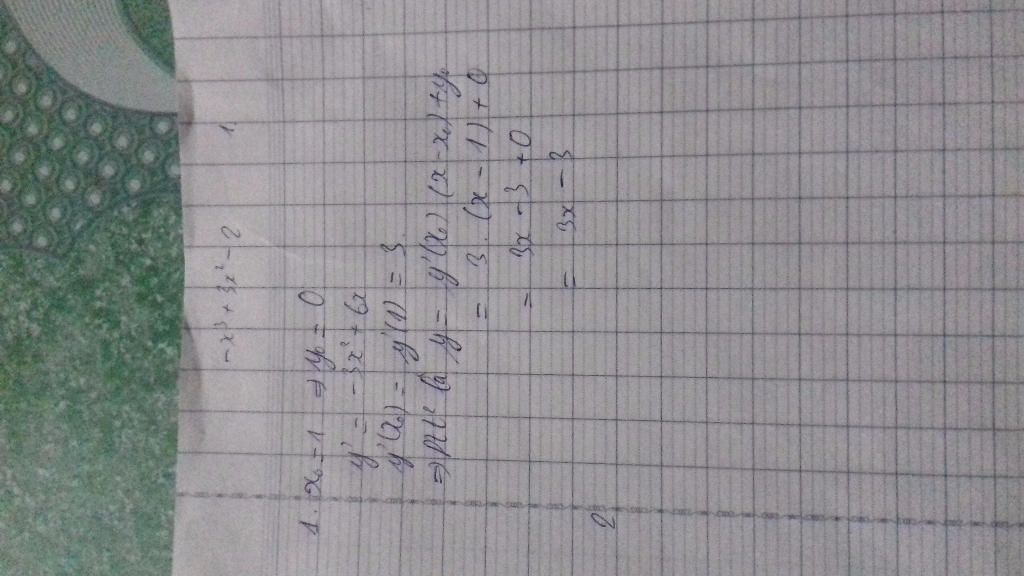 -x³ + 3x² - 2 1
1. x₀ = 1 ⇒ y₀ = 0
y' = -3x² + 6x
y'(x₀) = y'(1) = 3
⇒ ptt² là y = y'(x₀) (x - x₀) + y₀
= 3. (x - 1) + 0
= 3x - 3 + 0
= 3x - 3
2